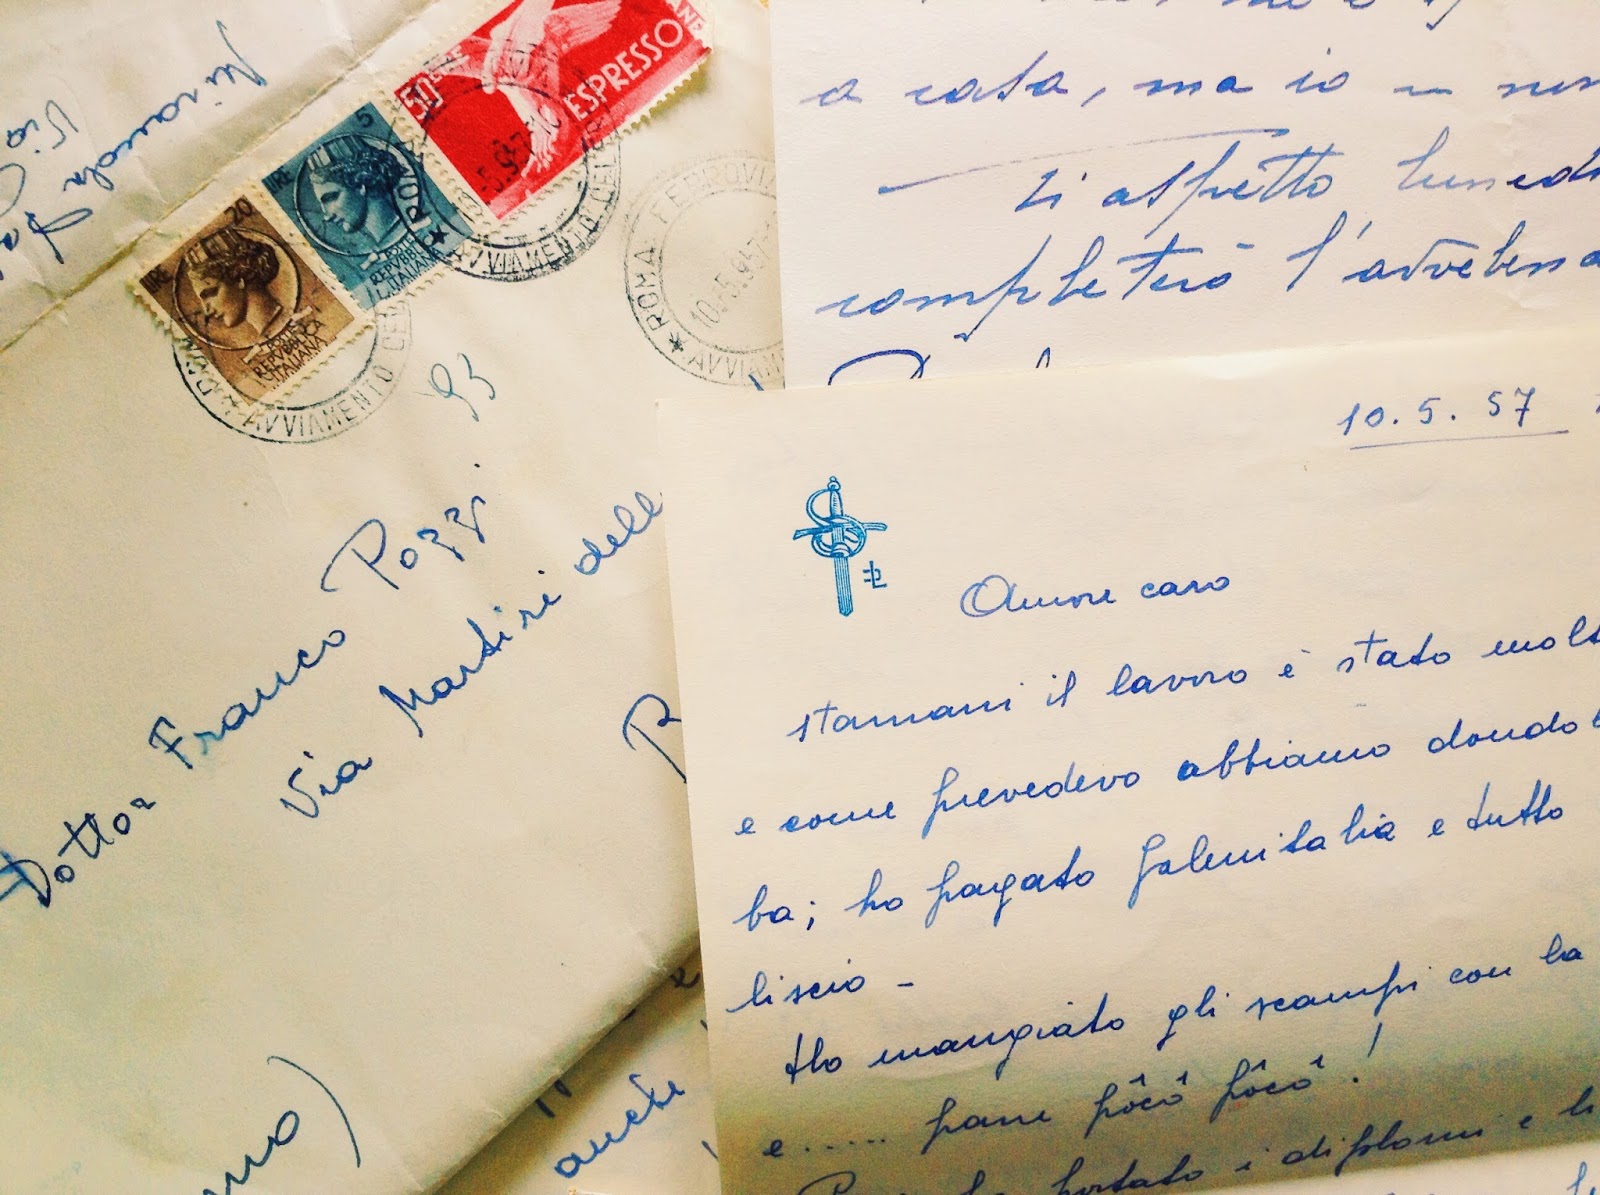 Miranda
Via
LIRE 20
POSTE
REPVBBLICA
ITALIANA
LIRE 5
POSTE
REPVBBLICA
ITALIANA
50 LIRE
ESPRESSO
ROMA
AVVIAMENTO CEL
ROMA FERROVIA
10.-5.957-
AVVIAME
93
Dottor Franco Pozzi
Via Martiri dell
a casa, ma io non
ti aspetto lunedi
completerò l'
10.5.57
Amore caro
stamani il lavoro è stato molt
e come prevedevo abbiamo dondol
ba; ho pagato Galenitalia e tutto
liscio -
Ho mangiato gli scampi con la
e...... pane pôcô pôcô!
portato i diplomi e l
anche